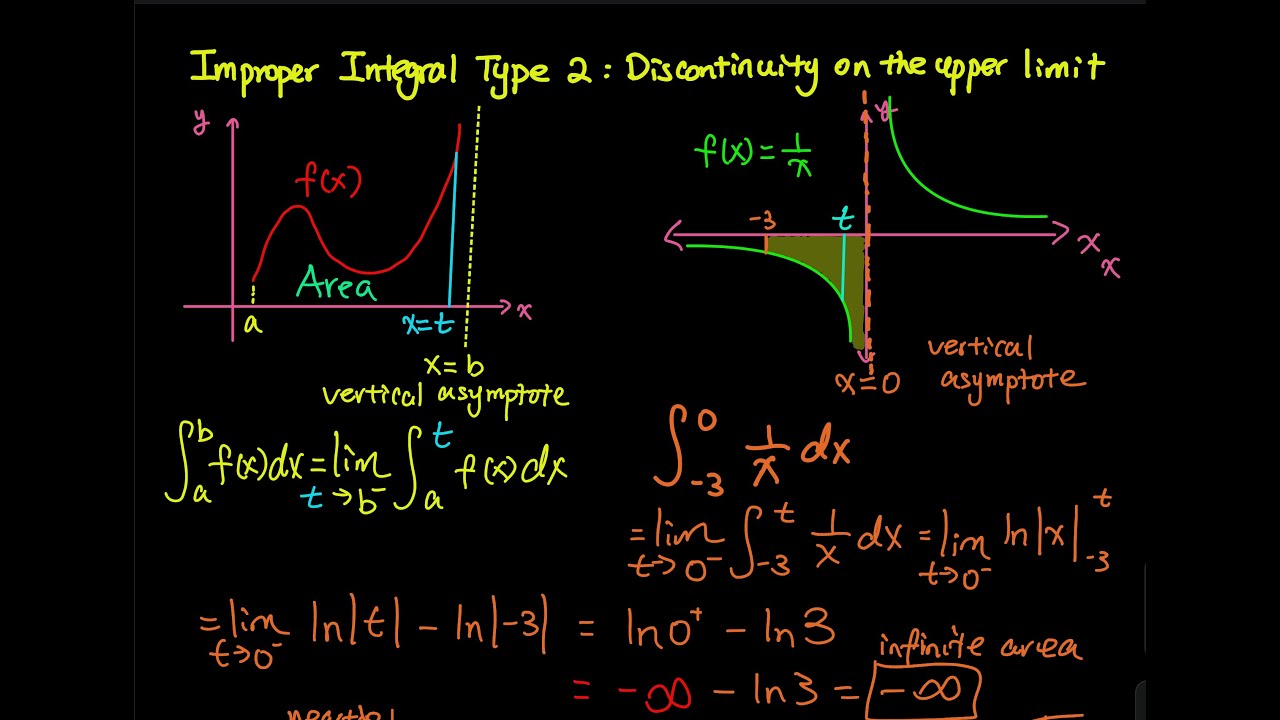 Improper Integral Type 2 : Discontinuity on the upper limit
y
f(x)
Area
a
x=t
x
x=b
vertical asymptote
∫_a^b f(x)dx = lim_{t→b⁻} ∫_a^t f(x)dx
y
f(x) = 1/x
-3
t
x
x
x=0
vertical
asymptote
∫_{-3}^0 1/x dx
= lim_{t→0⁻} ∫_{-3}^t 1/x dx = lim_{t→0⁻} ln|x| |_{-3}^t
= lim_{t→0⁻} ln|t| - ln|-3| = ln0⁺ - ln3
infinite area
= -∞ - ln3 = -∞